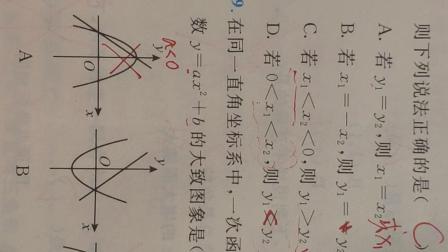 则下列说法正确的是(
A. 若 y₁=y₂,则 x₁=x₂
B. 若 x₁=-x₂,则 y₁=
C. 若 x₁<x₂<0,则 y₁>y₂
D. 若 0<x₁<x₂,则 y₁ y₂
9. 在同一直角坐标系中,一次函
数 y=ax²+b 的大致图象是(
a<0
y
O
x
A
y
O
x
B